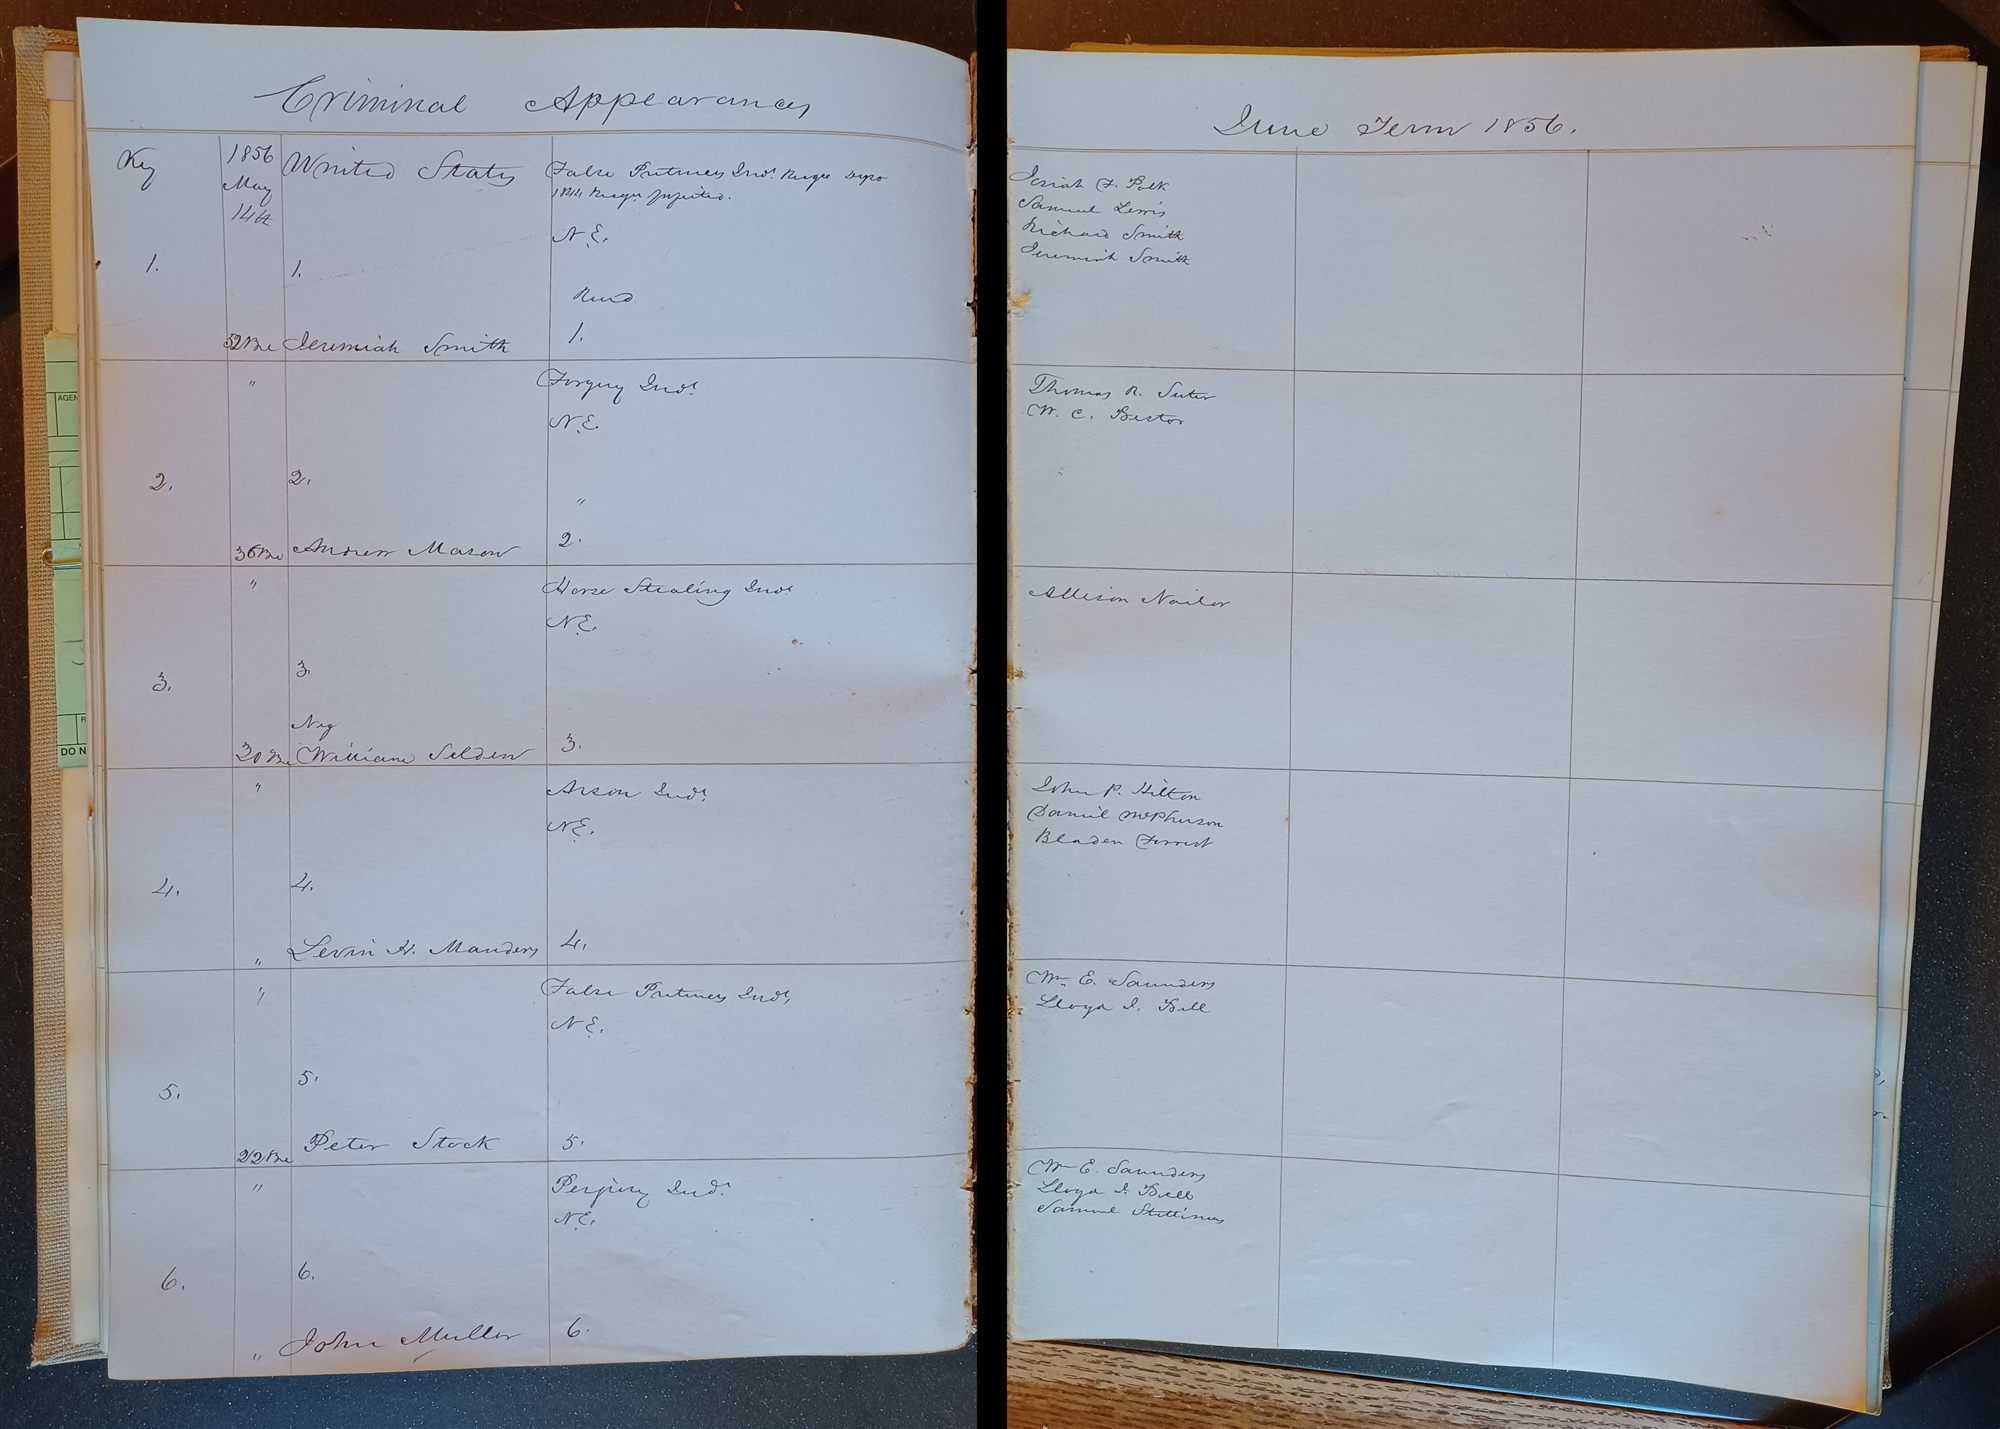 Criminal Appearances
Key
1856
May
14th
United States
False Pretences Indt.
1844
N.E.
1.
1.
Jeremiah Smith
1.
"
Forgery Indt
N.E.
2.
2.
"
Andrew Mason
2.
"
Horse Stealing Indt
N.E.
3.
3.
Neg
William Selden
3.
"
Arson Indt.
N.E.
4.
4.
"
Levin H. Manders
4.
"
False Pretences Indt.
N.E.
5.
5.
Peter Stock
5.
"
Perjury Indt.
N.E.
6.
6.
"
John Muller
6.
June Term 1856.
Josiah F. Polk
Samuel Lewis
Richard Smith
Jeremiah Smith
Thomas R. Suter
W. C. Bestor
Allison Nailor
John P. Hilton
Daniel McPherson
Bladen Forrest
Wm. E. Saunders
Lloyd J. Bell
Wm E. Saunders
Lloyd J. Bell
Samuel Stettinius
AGEN
DO N